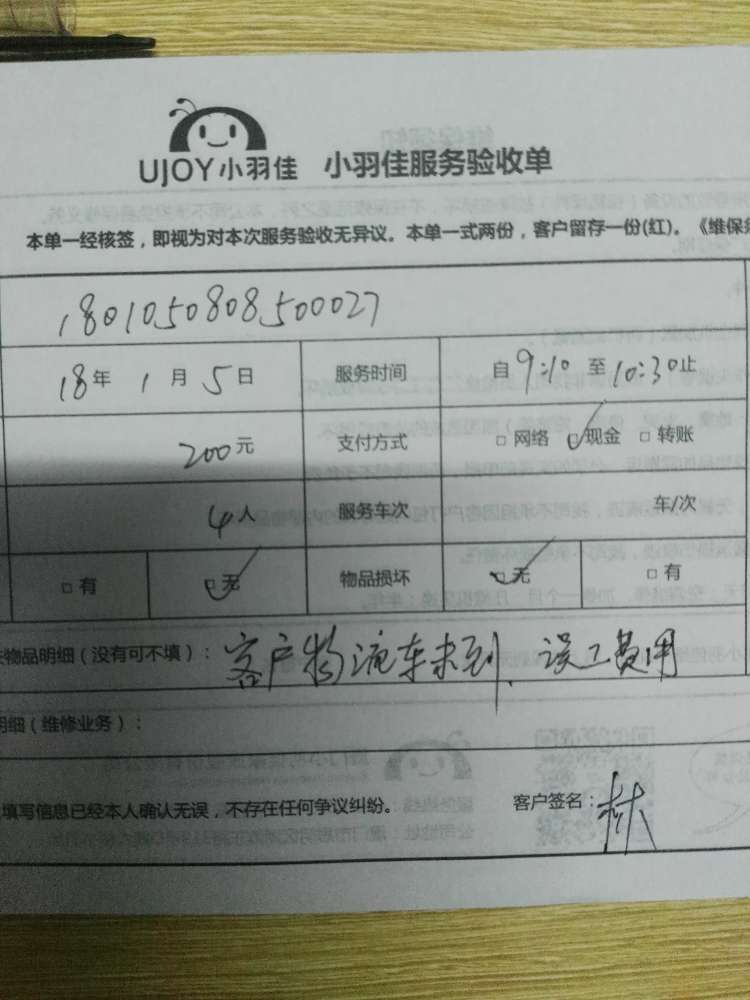 UJOY小羽佳 小羽佳服务验收单
本单一经核签，即视为对本次服务验收无异议。本单一式两份，客户留存一份(红)。《维保
180105080850027
18年 1月 5日 服务时间 自 9:10 至 10:30止
200元 支付方式 □ 网络 ☑ 现金 □ 转账
4人 服务车次 车/次
□ 有 ☑ 无 物品损坏 ☑ 无 □ 有
物品明细（没有可不填）： 客户物流车未到，误工费用
明细（维修业务）：
填写信息已经本人确认无误，不存在任何争议纠纷。 客户签名： 林